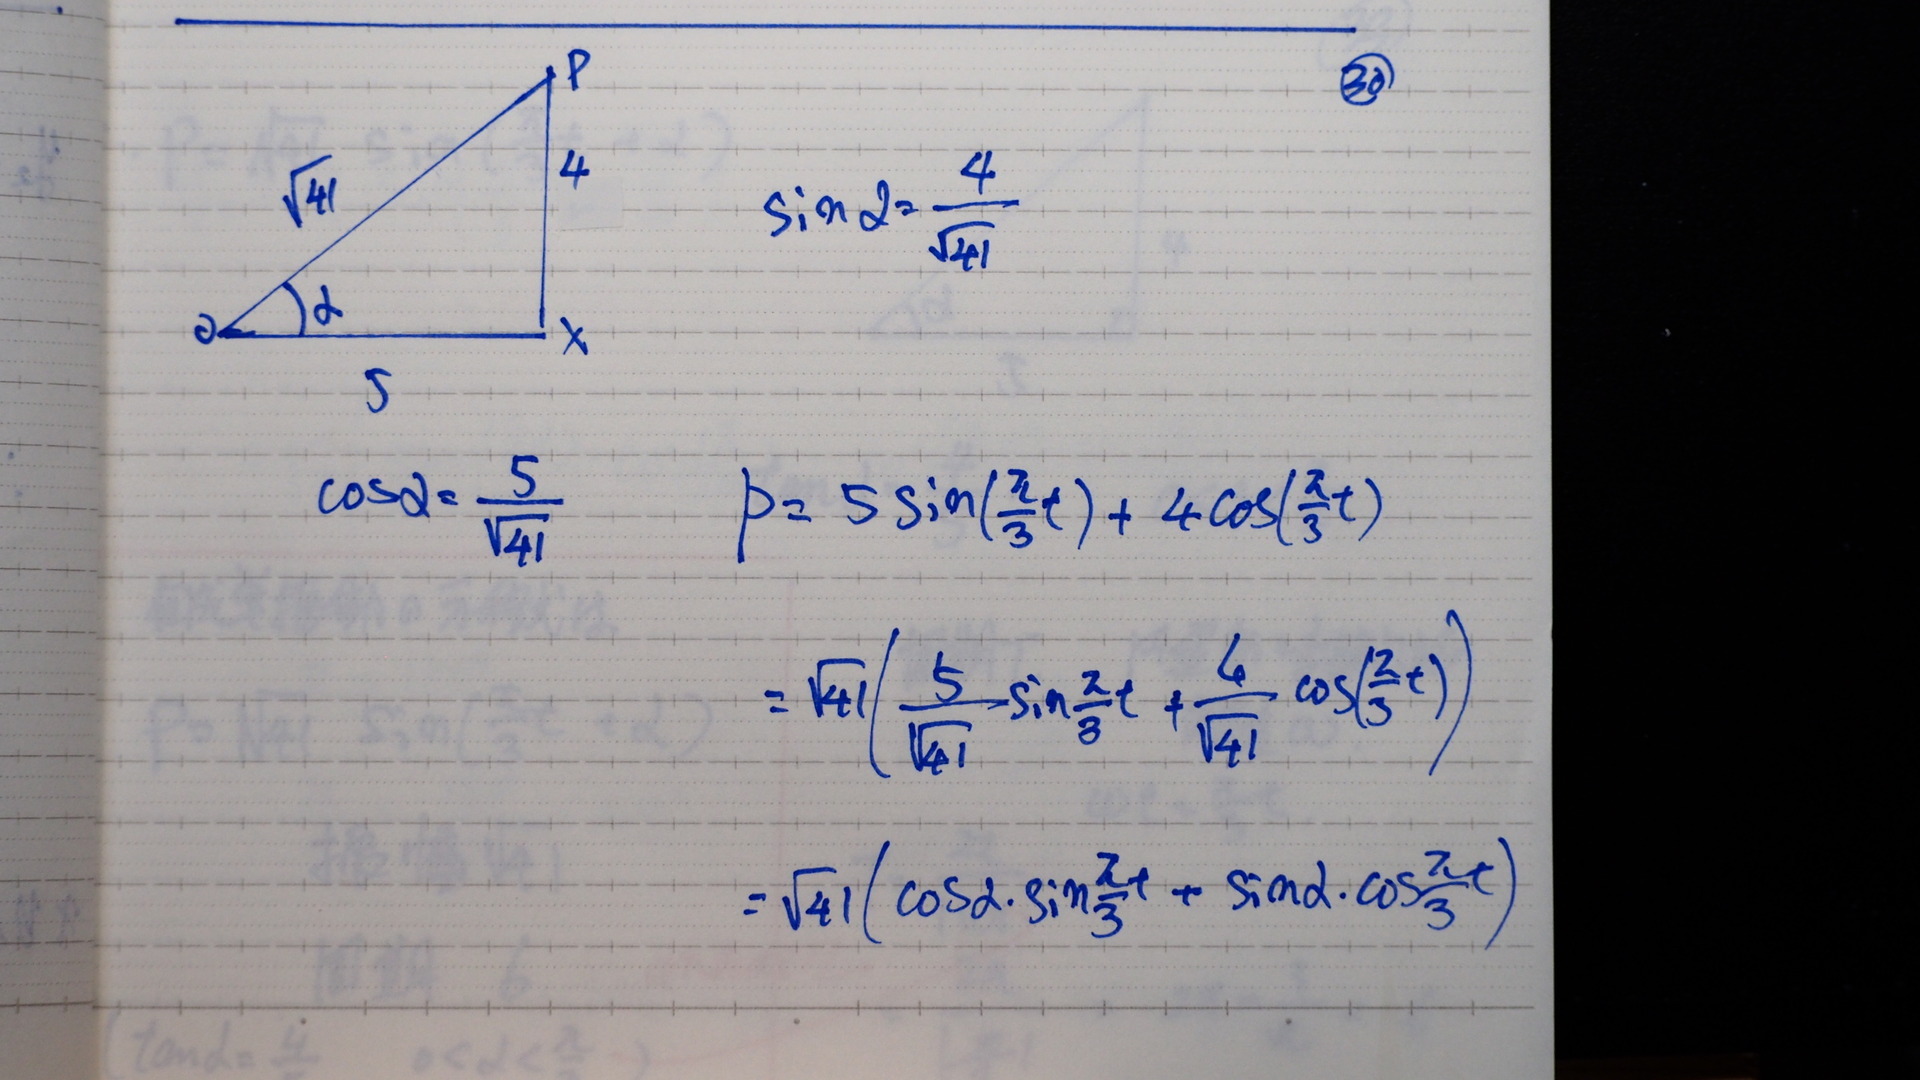 ㉚
P
√41
4
sin α = 4/√41
O
α
X
5
cos α = 5/√41
p = 5 sin(π/3 t) + 4 cos(π/3 t)
= √41 ( 5/√41 sin π/3 t + 4/√41 cos(π/3 t) )
= √41 ( cos α · sin π/3 t + sin α · cos π/3 t )